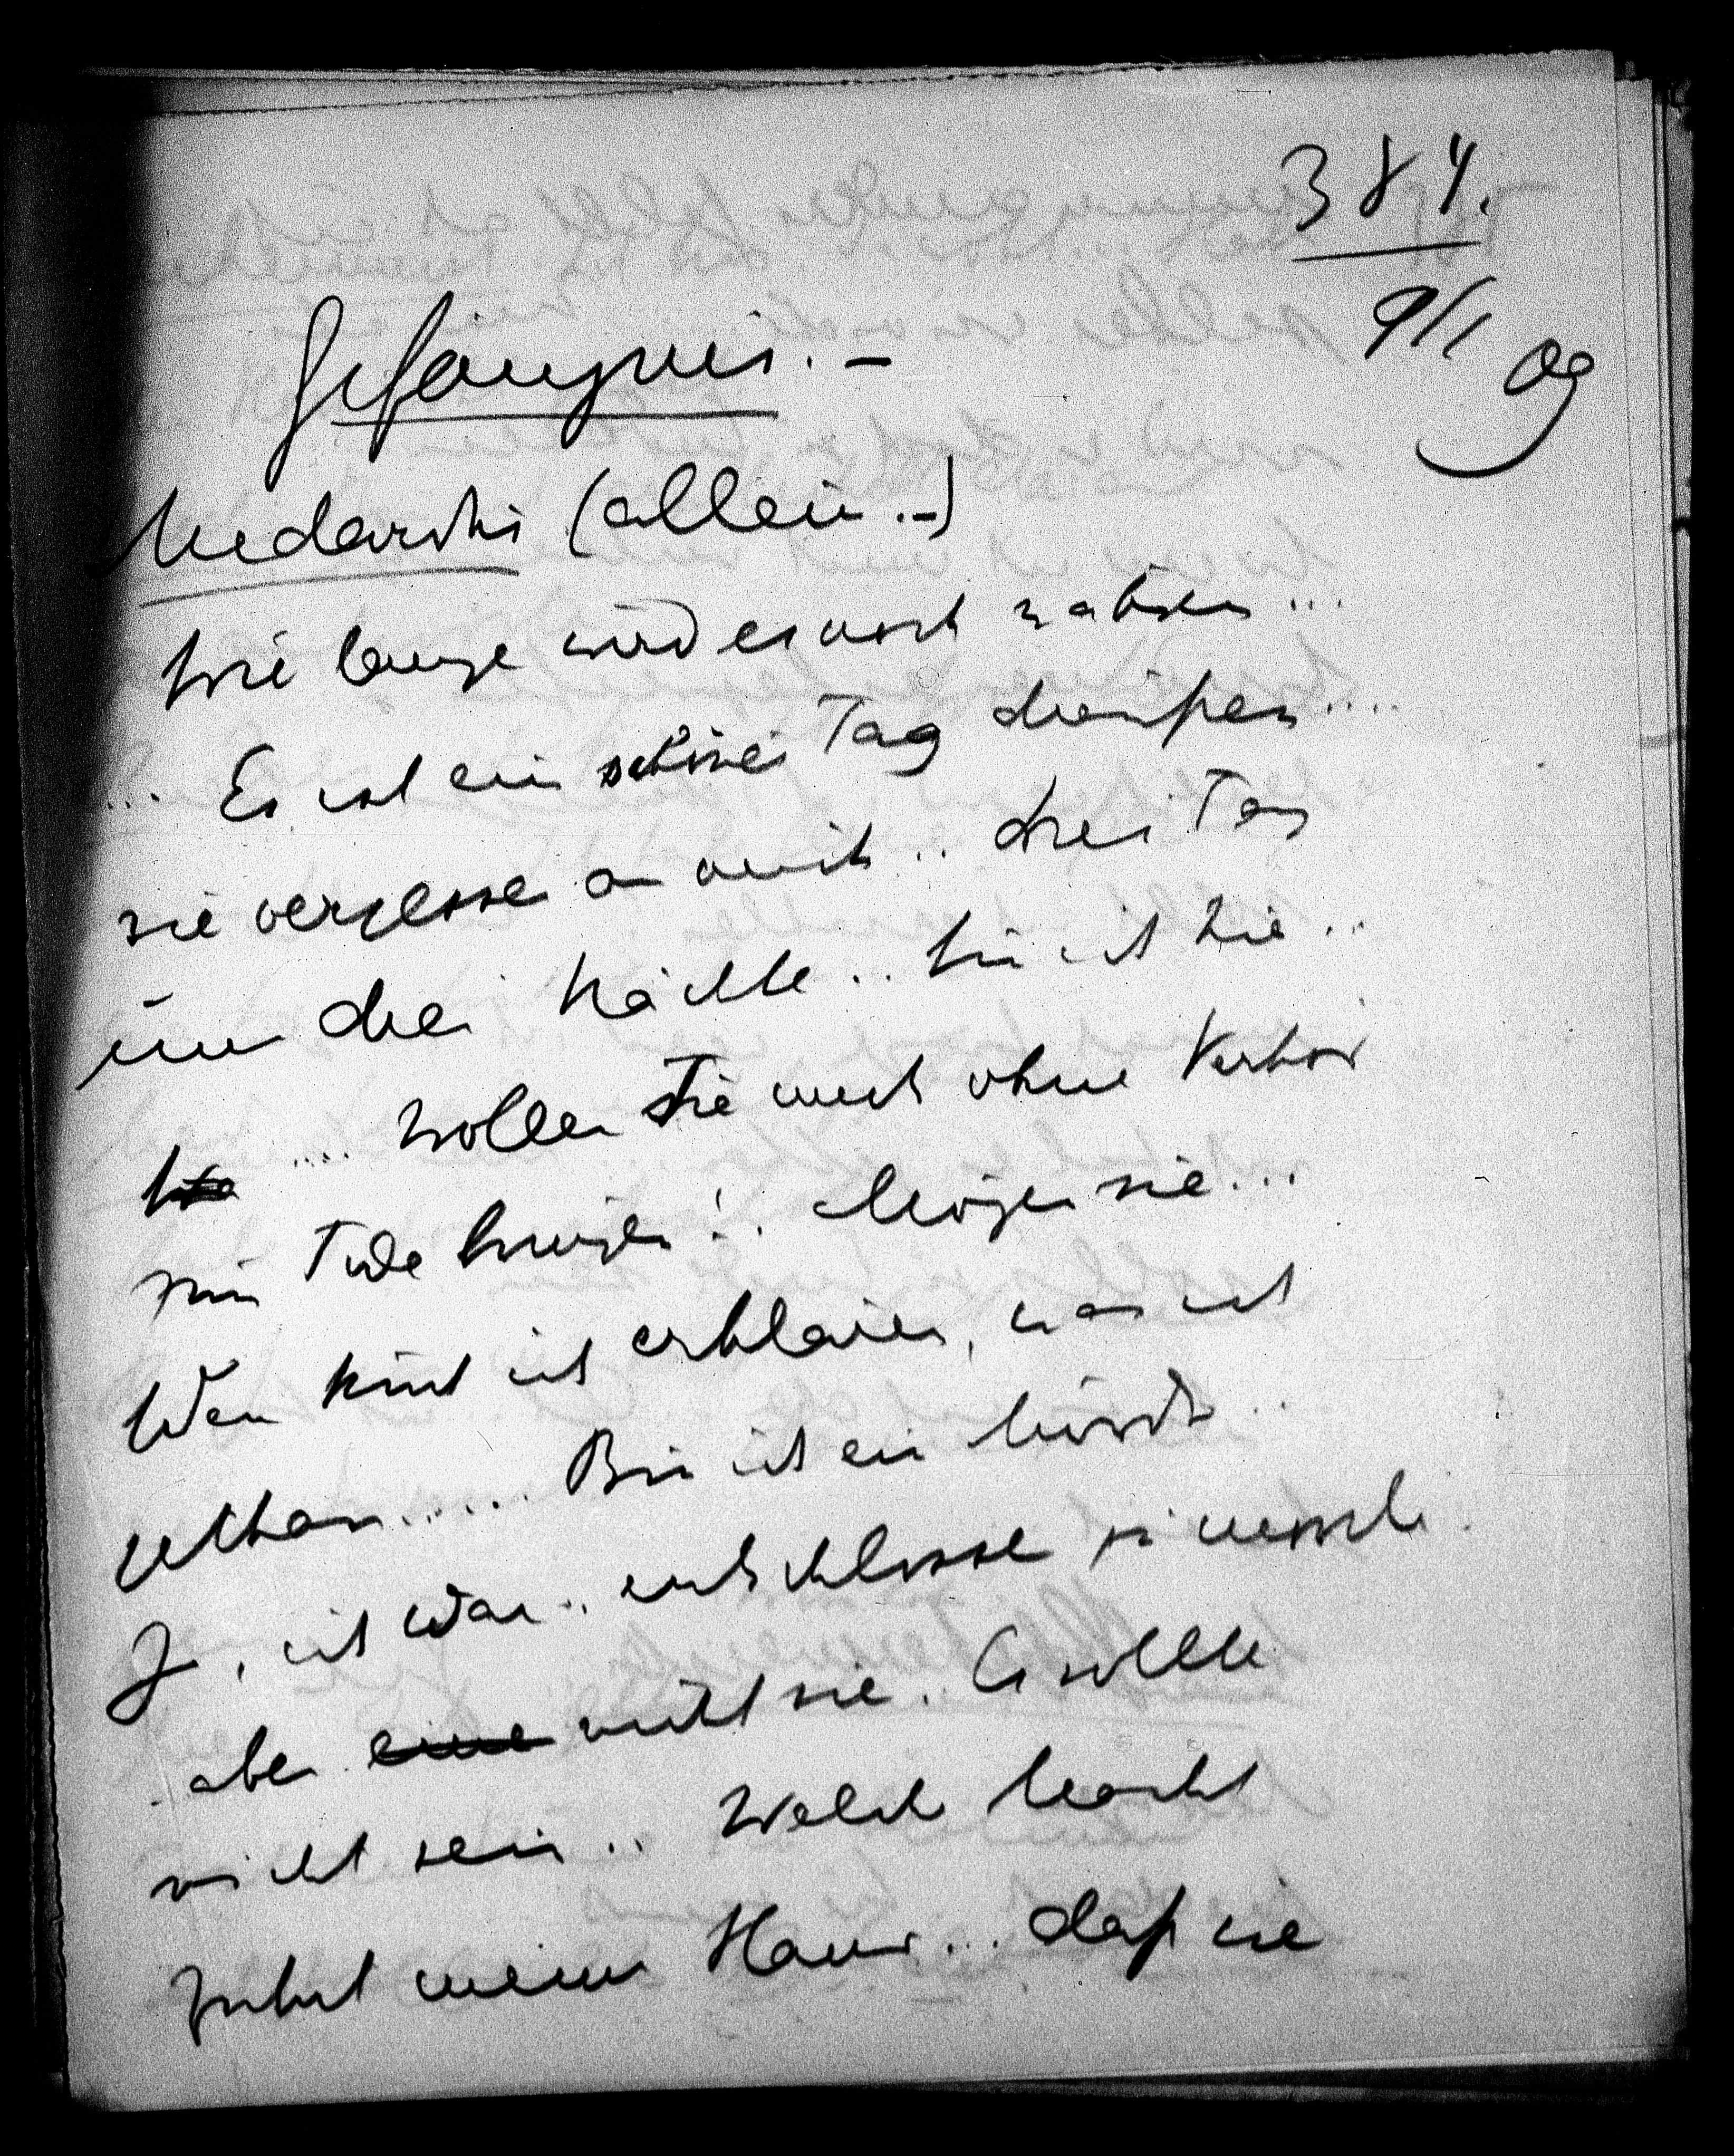 384.
9/1 09
Gefängnis. –
Medardus (allein. –)
Wie lange wird es noch währen...
... Es ist ein schöner Tag draußen....
sie vergessen an mich.. drei Tage
und drei Nächte.. bin ich hie..
.... Wollen Sie mich ohne Verhör
zum Tode bringen!. Mögen sie...
Wem könnt ich erklären, was ich
gethan..... Bin ich ein Mörder..
Ja, ich war.. entschlossen zu morden.
aber nicht sie. Es sollte
nicht sein.. Welche Macht
führt meine Hand... daß sie